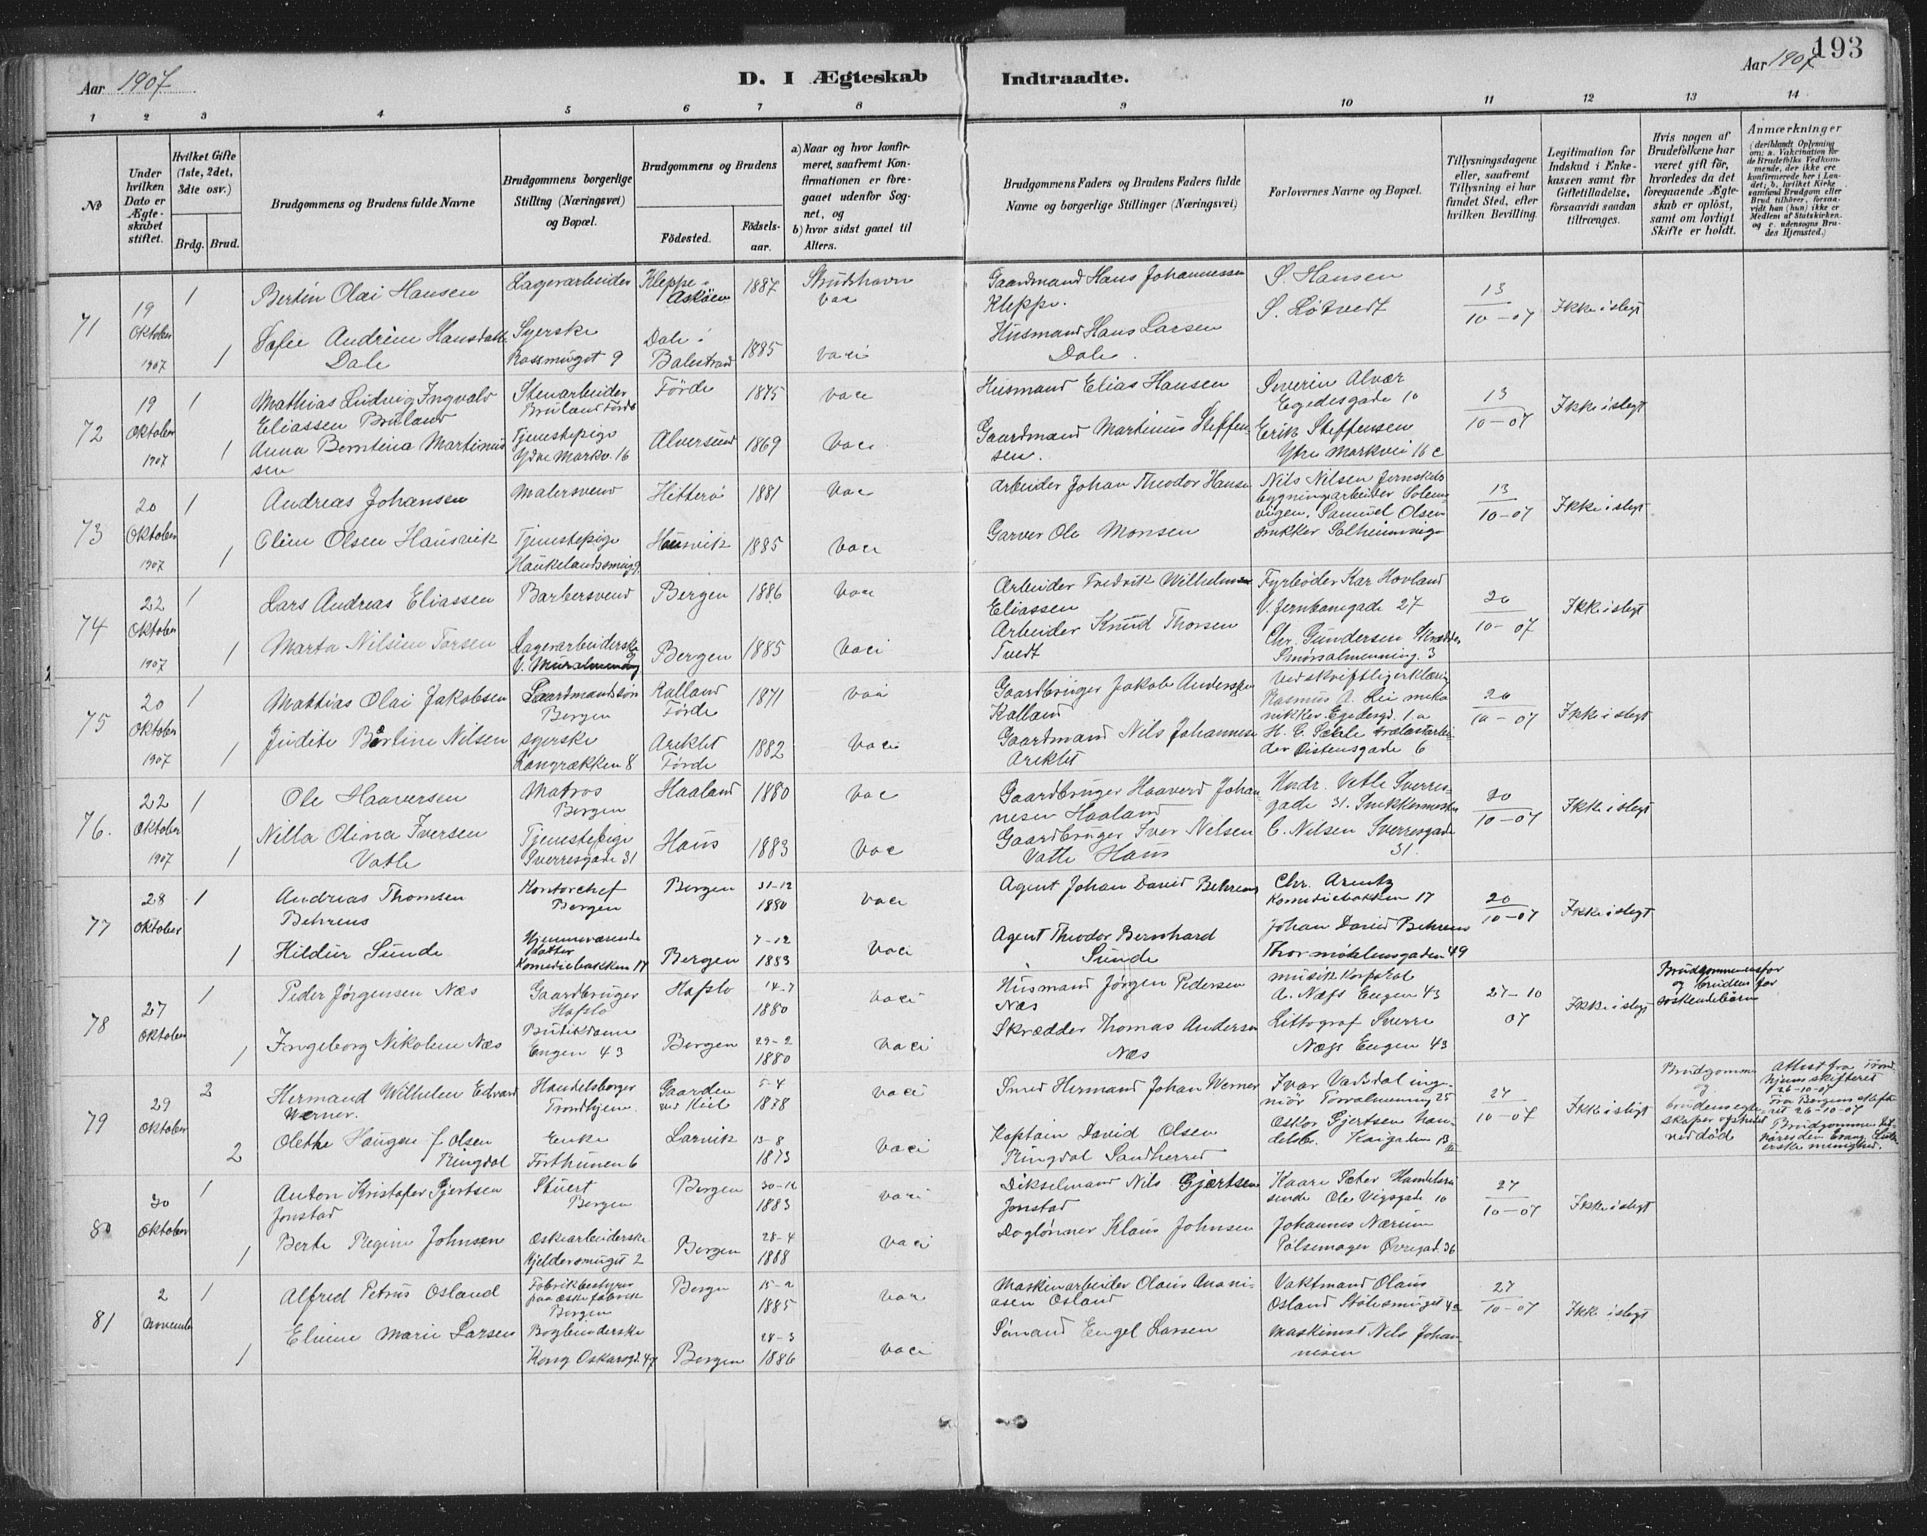 193
Aar 1907
D. I Ægteskab
Indtraadte.
Aar 1907
1 2 3 4 5 6 7 8 9 10 11 12 13 14
No
Under hvilken Dato er Ægteskabet stiftet.
Hvilket Gifte (1ste, 2det, 3die osv.)
Brdg. Brud.
Brudgommens og Brudens fulde Navne
Brudgommens borgerlige Stilling (Næringsvei) og Bopæl.
Brudgommens og Brudens
Fødested.
Fødsels-aar.
a) Naar og hvor konfirmeret, saafremt Konfirmationen er foregaaet udenfor Sognet, og
b) hvor sidst gaaet til Alters.
Brudgommens Faders og Brudens Faders fulde Navne og borgerlige Stillinger (Næringsvei)
Forlovernes Navne og Bopæl.
Tillysningsdagene eller, saafremt Tillysning ei har fundet Sted, efter hvilken Bevilling.
Legitimation for Indskud i Enkekassen samt for Giftetilladelse, forsaavidt saadan tiltrænges.
Hvis nogen af Brudefolkene har været gift før, hvorledes da det foregaaende Ægteskab er opløst, samt om lovligt Skifte er holdt.
Anmærkninger
(deriblandt Oplysning om: a. Vakcination for de Brudefolks Vedkommende, der ikke ere konfirmerede her i Landet; b. hvilket Kirkesamfund Brudgom eller Brud tilhører, forsaavidt han (hun) ikke er Medlem af Statskirken, og c. udensogns Brudes Hjemsted.)
71 19 Oktober 1907
1 Bertin Olai Hansen Lagerarbeider Kleppe i Askøen 1887 Strudshavn vac
Gaardmand Hans Johannessen Kleppe. S. Hansen
1 Sofie Andrine Hansdatter Dale Syerske 9 Dale i Balestrand 1885 vaci
Husmand Hans Larsen Dale. S. Løtvedt
13/10-07 Ikke i slegt
72 19 Oktober 1907
1 Mathias Ludvig Ingvald Eliassen Bruland Stenarbeider Bruland Førde Førde 1875 vaci
Husmand Elias Hansen Severin Alvær Egedesgade 10
1 Anna Berntina Martinussen Tjenestepige Ydre Markv. 16 Alversund 1869 vaci
Gaardmand Martinus Steffensen. Erik Steffensen Ytre Markvei 16 c
13/10-07 Ikke i slegt
73 20 Oktober 1907
1 Andreas Johansen Malersvend Hitterø 1881 vac
Arbeider Johan Theodor Hansen Nils Nilsen Jernskibsbygningsarbeider Solemviigen.
1 Oline Olsen Hausvik Tjenestepige Hausvik 1885 vaci
Garver Ole Monsen Samuel Olsen snikker Solheimsvig
13/10-07 Ikke i slegt
74 22 Oktober 1907
1 Lars Andreas Eliassen Barbersvend Bergen 1886 vac
Arbeider Fredrik Wilhelmsen Eliassen Fyrbøder Kar Hovland V. Jernbanegade 27
1 Marta Nilsine Torsen Lagerarbeiderske Bergen 1885 vaci
Arbeider Knud Thorsen Tvedt Chr. Gundersen Skrædder Smørsalmenning. 3
20/10-07 Ikke i slegt
75 20 Oktober 1907
1 Mathias Olai Jakobsen Gaardmandssøn Bergen Kalland Førde 1871 vaci
Gaardbruger Jakob Anderssen Kalland Ved skriftlig erklæring Rasmus A. Lei mekanikker Egedesgd. 1.a
1 Judite Bertine Nilsen syerske Førde 1882 vaci
Gaardmand Nils Johannesen H. C. Sæhle
20/10-07 Ikke i slegt
76. 22 Oktober 1907
1 Ole Haaversen Matros Bergen Haaland 1880 vac
Gaardbruger Haaverd Johannesen Haaland Andr. Vatle Sverresgade 31. Snikkermester
1 Nilla Olina Iversen Vatle Tjenestepige Sverresgade 31 Haus 1883 vac
Gaardbruger Iver Nilsen Vatle Haus C. Nilsen Sverresgade 31.
20/10-07 Ikke i slegt
77 28 Oktober
1 Andreas Thomsen Behrens Kontorchef Bergen Bergen 31-12 1880 vaci
Agent Johan David Behrens Chr. Arentz Komediebakken 17
1 Hildur Sunde Hjemmeværende datter Komediebakken 17 Bergen 7-12 1883 vaci
Agent Theodor Bernhard Sunde Johan David Behrens Thormøhlensgaden 49
20/10-07 Ikke i slegt
78 27 Oktober
1 Peder Jørgensen Næs Gaardbruger Hafslo Hafslo 14-7 1880 vaci
Husmand Jørgen Pedersen Næs musikkorporal A. Næss Engen 43
1 Ingeborg Nikoline Næs Butikdame Engen 43 Bergen 29-2 1880 vaci
Skrædder Thomas Andersen Næs Littograf Sverre Næss Engen 43
27-10 07 Ikke i slegt Brudgommens far og brudens far søskendebørn
79 29 Oktober
2 Hermand Wilhelm Edvard Werner. Handelsborger Trondhjem Gaarden ved Kiel 5-4 1878 vaci
Smed Hermand Johan Werner Ivar Vadsdal ingeniør Torvalmenning 25
2 Olethe Haugen f. Olsen Ringdal Enke Forthunen 6 Larvik 13-8 1873 vaci
Kaptain David Olsen Ringdal Sandherred Oskar Gjertsen handelsb.
27/10-07 Ikke i slegt Brudgommens og brudens egteskaper ophævet ved død
Attest fra Trondhjems skifteret 26-10-07 Fra Bergens skifteret 26-10-07
80 30 Oktober
1 Anton Kristofer Gjertsen Jonstad Stuert Bergen Bergen 30-12 1883 vaci
Dikselmand Nils Gjertsen Jonstad Kaare Sæter Ole Vigsgade 10
1 Berte Regine Johnsen Æskearbeiderske Kjeldersmuget 2 Bergen 28-4 1888 vaci
Daglønner Klaus Johnsen Johannes Nærum Pølsemager Øvregad. 36
27/10-07 Ikke i slegt
81 2 November
1 Alfred Petrus Osland Fabrikbestyrer paa æskefabrik Bergen Bergen 15-2 1885 vac
Maskinarbeider Olaus Ananiasen Osland Vaktmand Olaus Osland Stølesmuget 4a
1 Eline Marie Larsen Bogbinderske Kong Oskarsgd. 47 Bergen 28-3 1886 vaci
Sømand Engel Larsen Maskinist Nils Johannesen
27/10-07 Ikke i slegt